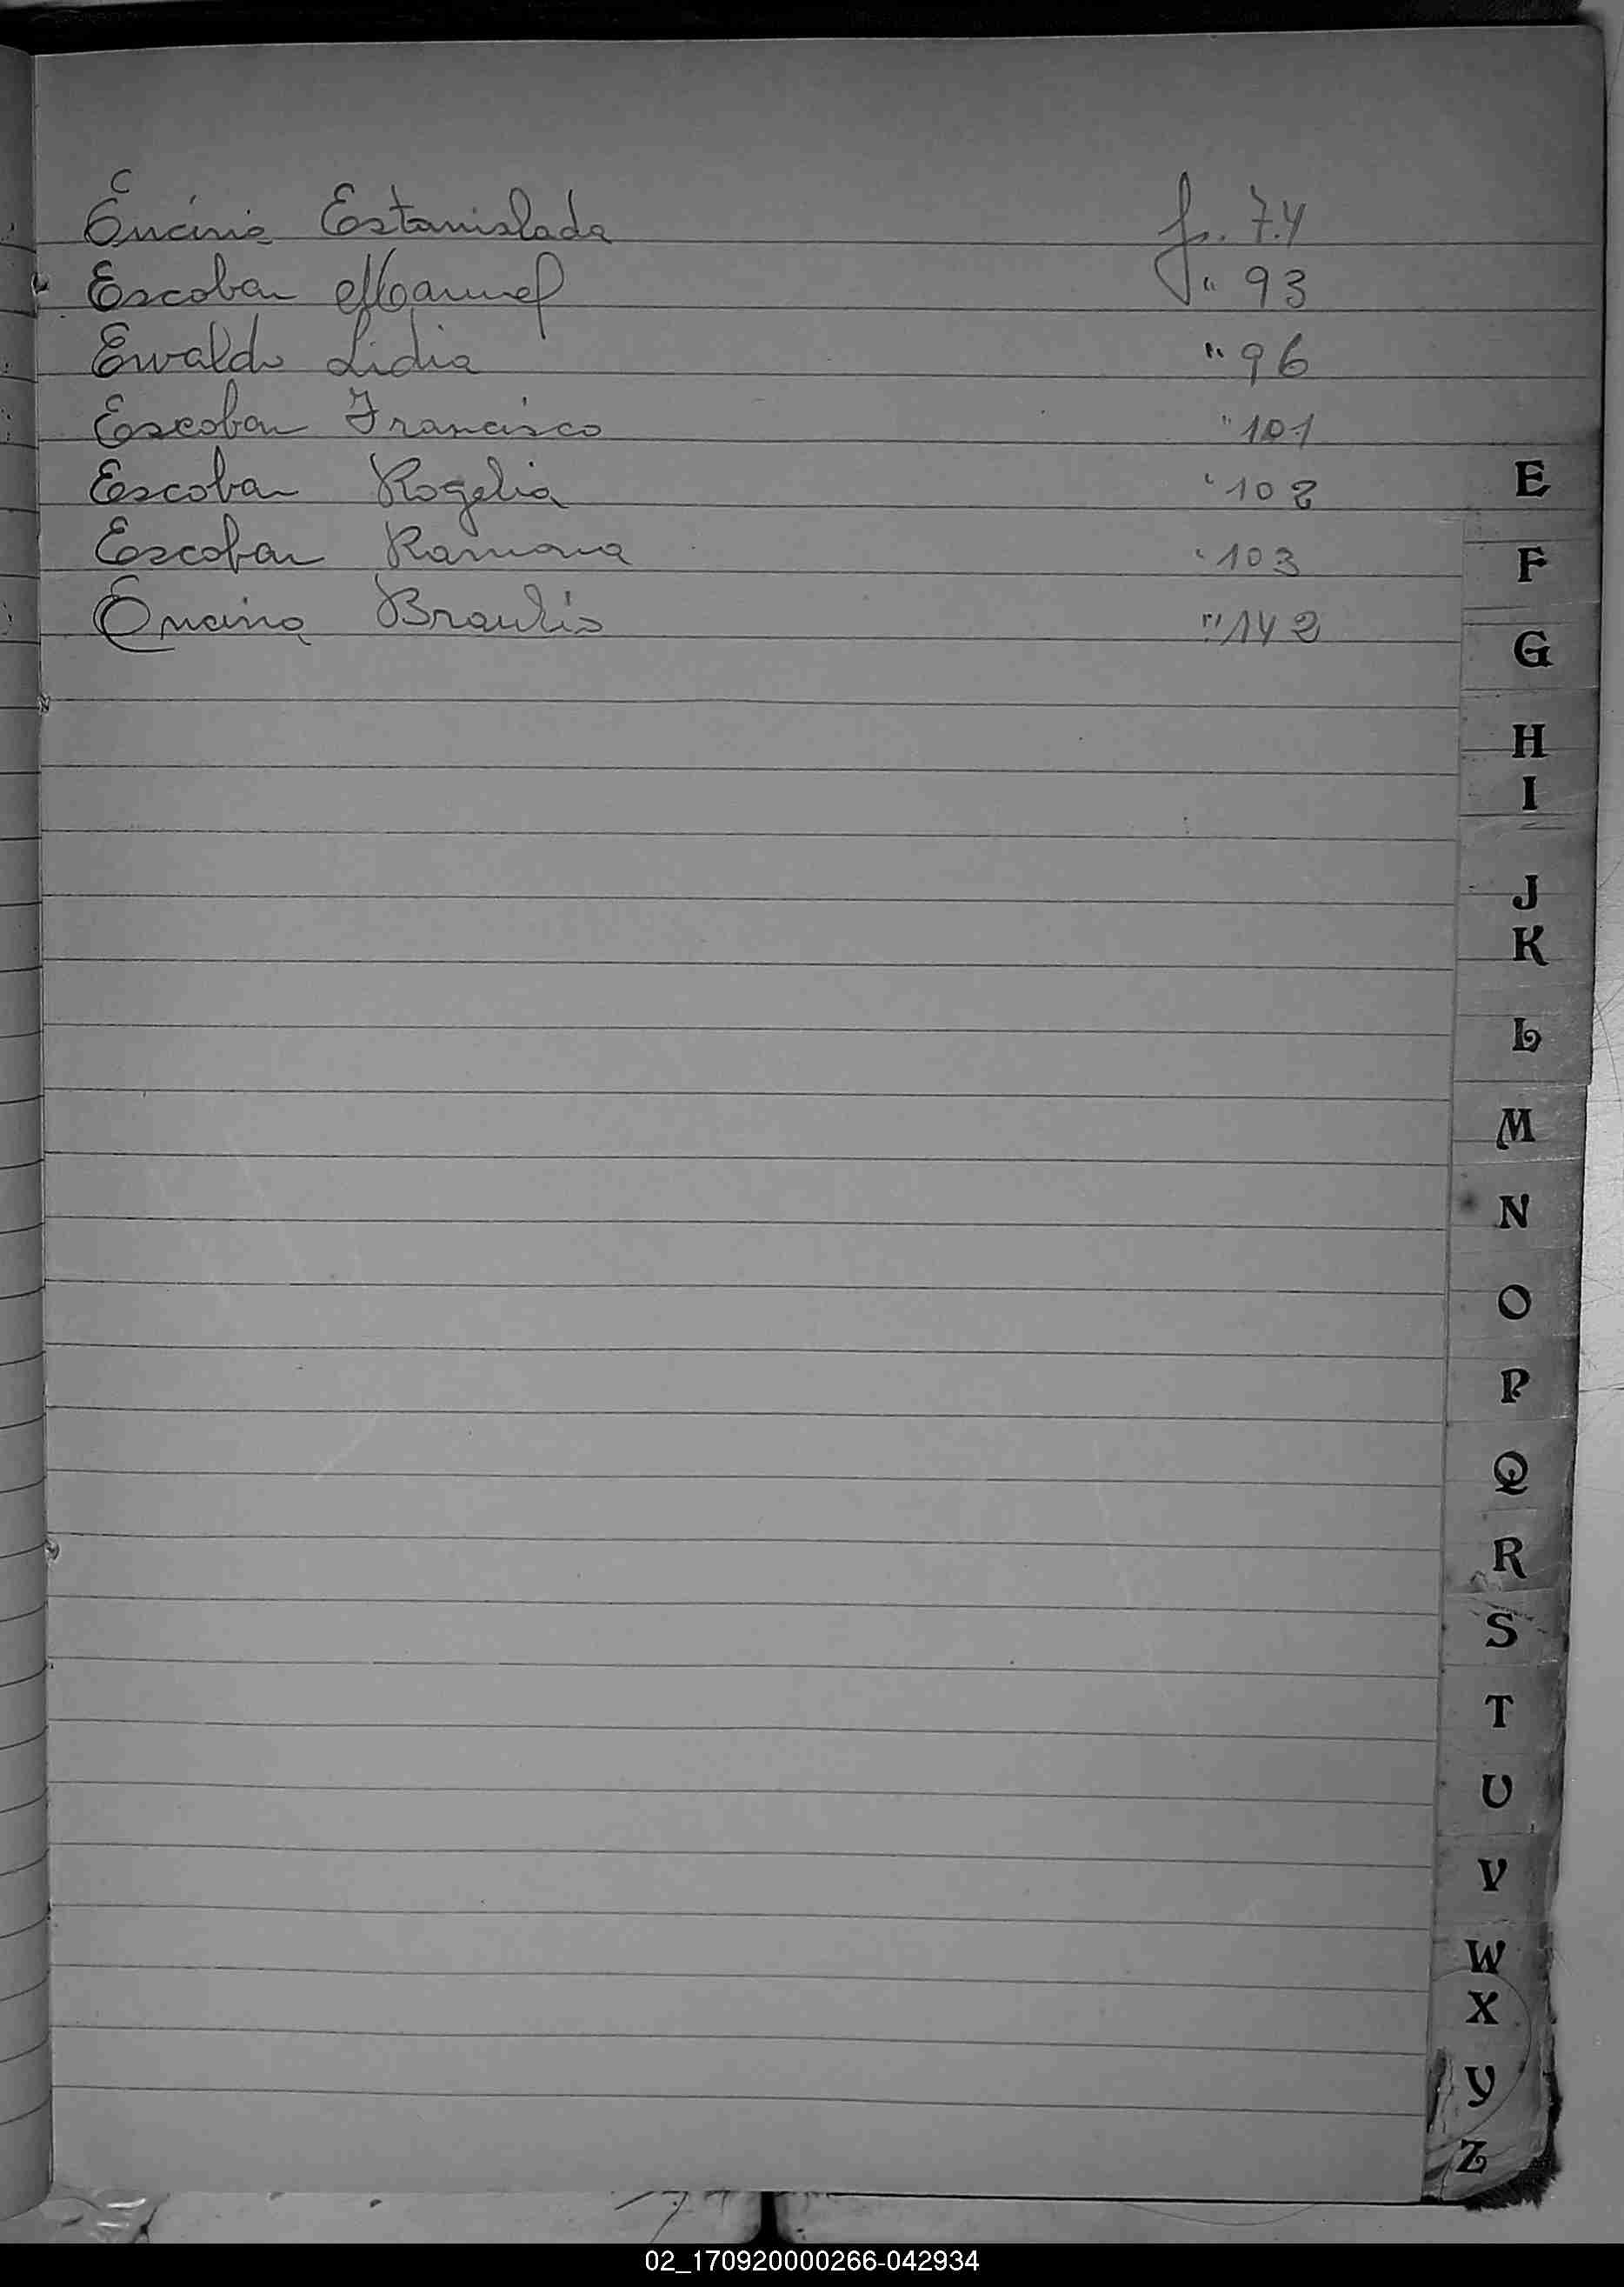 Encina Estanislada fs. 74
Escobar Manuel " 93
Ewaldo Lidia " 96
Escobar Francisco " 101
Escobar Rogelia " 102
Escobar Ramona " 103
Encina Braulio " 142
E
F
G
H
I
J
K
L
M
N
O
P
Q
R
S
T
U
V
W
X
Y
Z
02_170920000266-042934